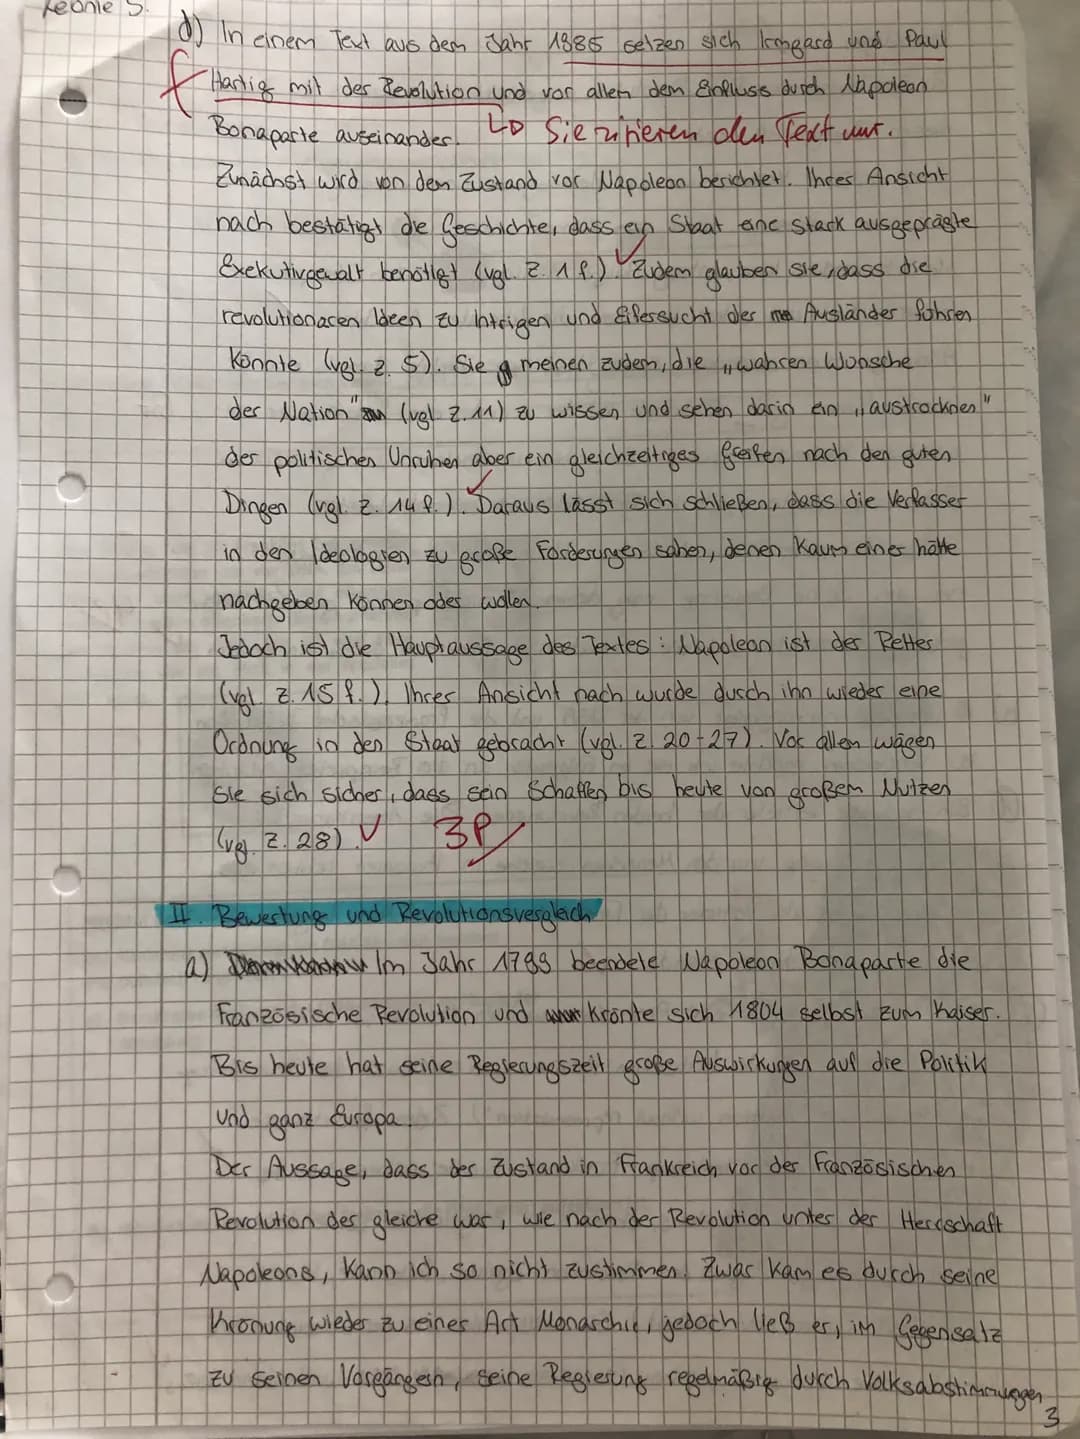 Leonie S.
d) In einem Text aus dem Jahr 1985 setzen sich Irmgard und Paul
f Hartig mit der Revolution und vor allem dem Einfluss durch Napoleon
Bonaparte auseinander. ↳ Sie zitieren den Text nur.
Zunächst wird von dem Zustand vor Napoleon berichtet. Ihrer Ansicht
nach bestätigt die Geschichte, dass ein Staat eine stark ausgeprägte
Exekutivgewalt benötigt (vgl. Z. 1 f.). ✓ Zudem glauben sie, dass die
revolutionären Ideen zu Intrigen und Eifersucht der Ausländer führen
könnte (vgl. Z. 5). Sie meinen zudem, die „wahren Wünsche
der Nation" (vgl. Z. 11) zu wissen und sehen darin ein „austrocknen"
der politischen Unruhen aber ein gleichzeitiges Greifen nach den guten
Dingen (vgl. Z. 14 f.). ✓ Daraus lässt sich schließen, dass die Verfasser
in den Ideologien zu große Forderungen sahen, denen kaum einer hätte
nachgeben können oder wollen.
Jedoch ist die Hauptaussage des Textes: Napoleon ist der Retter
(vgl. Z. 15 f.). Ihrer Ansicht nach wurde durch ihn wieder eine
Ordnung in den Staat gebracht (vgl. Z. 20-27). Vor allem wägen
sie sich sicher, dass sein Schaffen bis heute von großem Nutzen
(vg. Z. 28). ✓ 3P
II. Bewertung und Revolutionsvergleich
a) Im Jahr 1799 beendete Napoleon Bonaparte die
Französische Revolution und krönte sich 1804 selbst zum Kaiser.
Bis heute hat seine Regierungszeit große Auswirkungen auf die Politik
und ganz Europa.
Der Aussage, dass der Zustand in Frankreich vor der Französischen
Revolution der gleiche war, wie nach der Revolution unter der Herrschaft
Napoleons, kann ich so nicht zustimmen. Zwar kam es durch seine
Krönung wieder zu einer Art Monarchie, jedoch ließ er, im Gegensatz
zu seinen Vorgängern, seine Regierung regelmäßig durch Volksabstimmungen
3